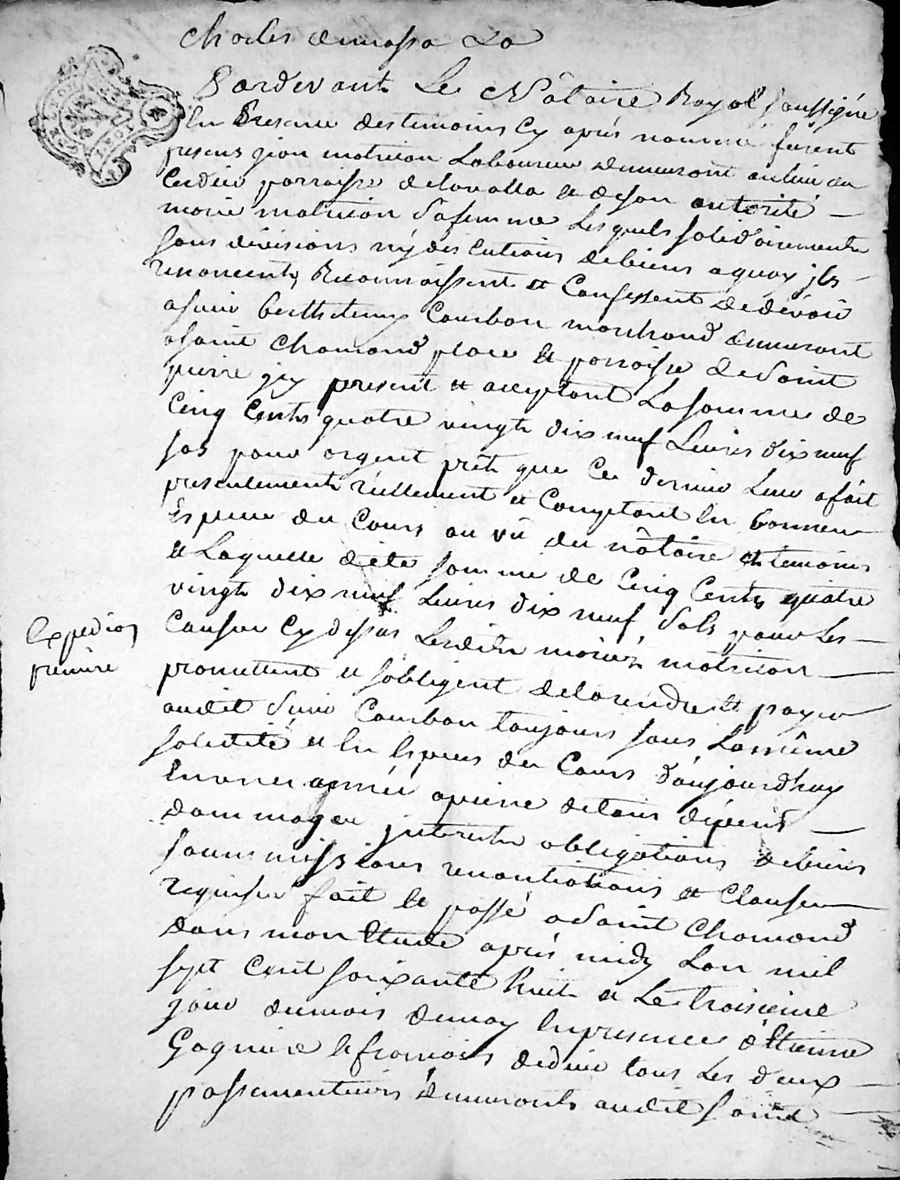 Pardevant Le Nôtaire Royal soussigné
En Presence des temoins Cy aprés nommé furent
presens jean matricon Laboureur demeurant au lieu du
parroisse delavalla et deson autorité
marie matricon Safemme Lesquels solidairement
sans divisions ny discutions debiens aquoy ils
renoncents Reconnoissent et Confessent dedévoir
asieur berthelemy Courbon marchand demeurant
asaint chamond place et parroisse desaint
pierre jcy present et acceptant Lasomme de
Cinq Cents quatre vingt dix neuf Livres dix neuf
sols pour argent prêté que Ce dernier Leur afait
presentement réellement et Comptant En bonnes
Espece du Cours au vû du nôtaire et temoins
et Laquelle dite somme de Cinq Cents quatre
vingts dix neuf Livres dix neuf Sols pour Les
Causes Cy dessus Lesdits mariés matricon
promettent et sobligent delarendre et payer
audit Sieur Courbon toujours sous Lamême
solidité et En Especes du Cours d'aujourdhuy
En une année apeine detous dépens
dommages interests obligations debiens
soummissions renontiations et Clauses
requises fait et passé aSaint Chamond
dans mon Etude aprés midy Lan mil
sept Cent soixante huit et Le troisieme
jour dumois demay En presence d'Etienne
Gagniere et francois dedieu tous Les deux
passementiers demeurants audit saint
Expedion
premiere